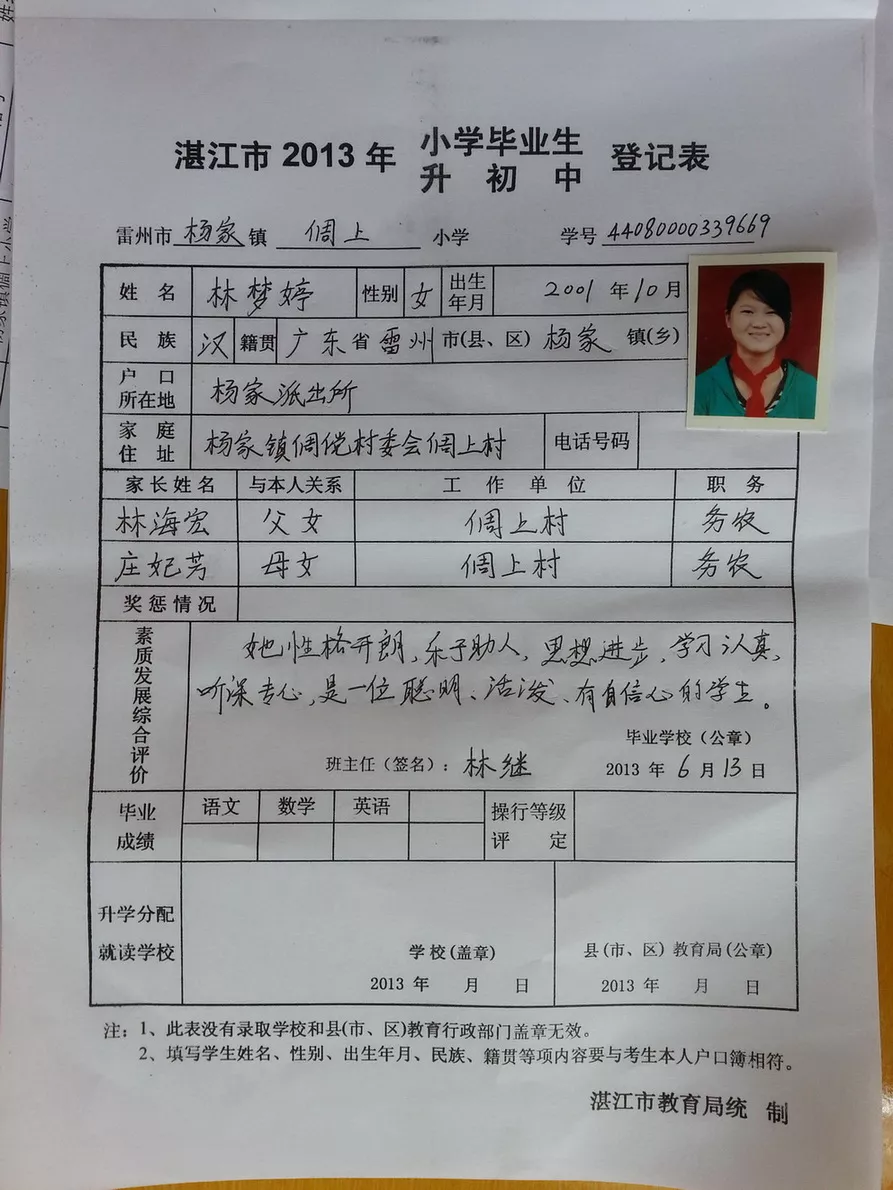 湛江市 2013 年 小学毕业生 登记表
升 初 中
雷州市 杨家 镇 倜上 小学 学号 44080000339669
姓 名 林梦婷 性别 女 出生年月 2001 年 10 月
民 族 汉 籍贯 广东 省 雷州 市(县、区) 杨家 镇(乡)
户 口 所在地 杨家派出所
家 庭 住 址 杨家镇倜傥村委会倜上村 电话号码
家长姓名 与本人关系 工 作 单 位 职 务
林海宏 父女 倜上村 务农
庄妃芳 母女 倜上村 务农
奖惩情况
素质发展综合评价
她性格开朗，乐于助人，思想进步，学习认真，
听深专心，是一位聪明、活泼、有自信心的学生。
毕业学校（公章）
班主任（签名）： 林继 2013 年 6 月 13 日
毕业成绩 语文 数学 英语 操行等级评 定
升学分配
就读学校
学校(盖章) 县(市、区)教育局(公章)
2013 年 月 日 2013 年 月 日
注：1、此表没有录取学校和县(市、区)教育行政部门盖章无效。
2、填写学生姓名、性别、出生年月、民族、籍贯等项内容要与考生本人户口簿相符。
湛江市教育局统 制